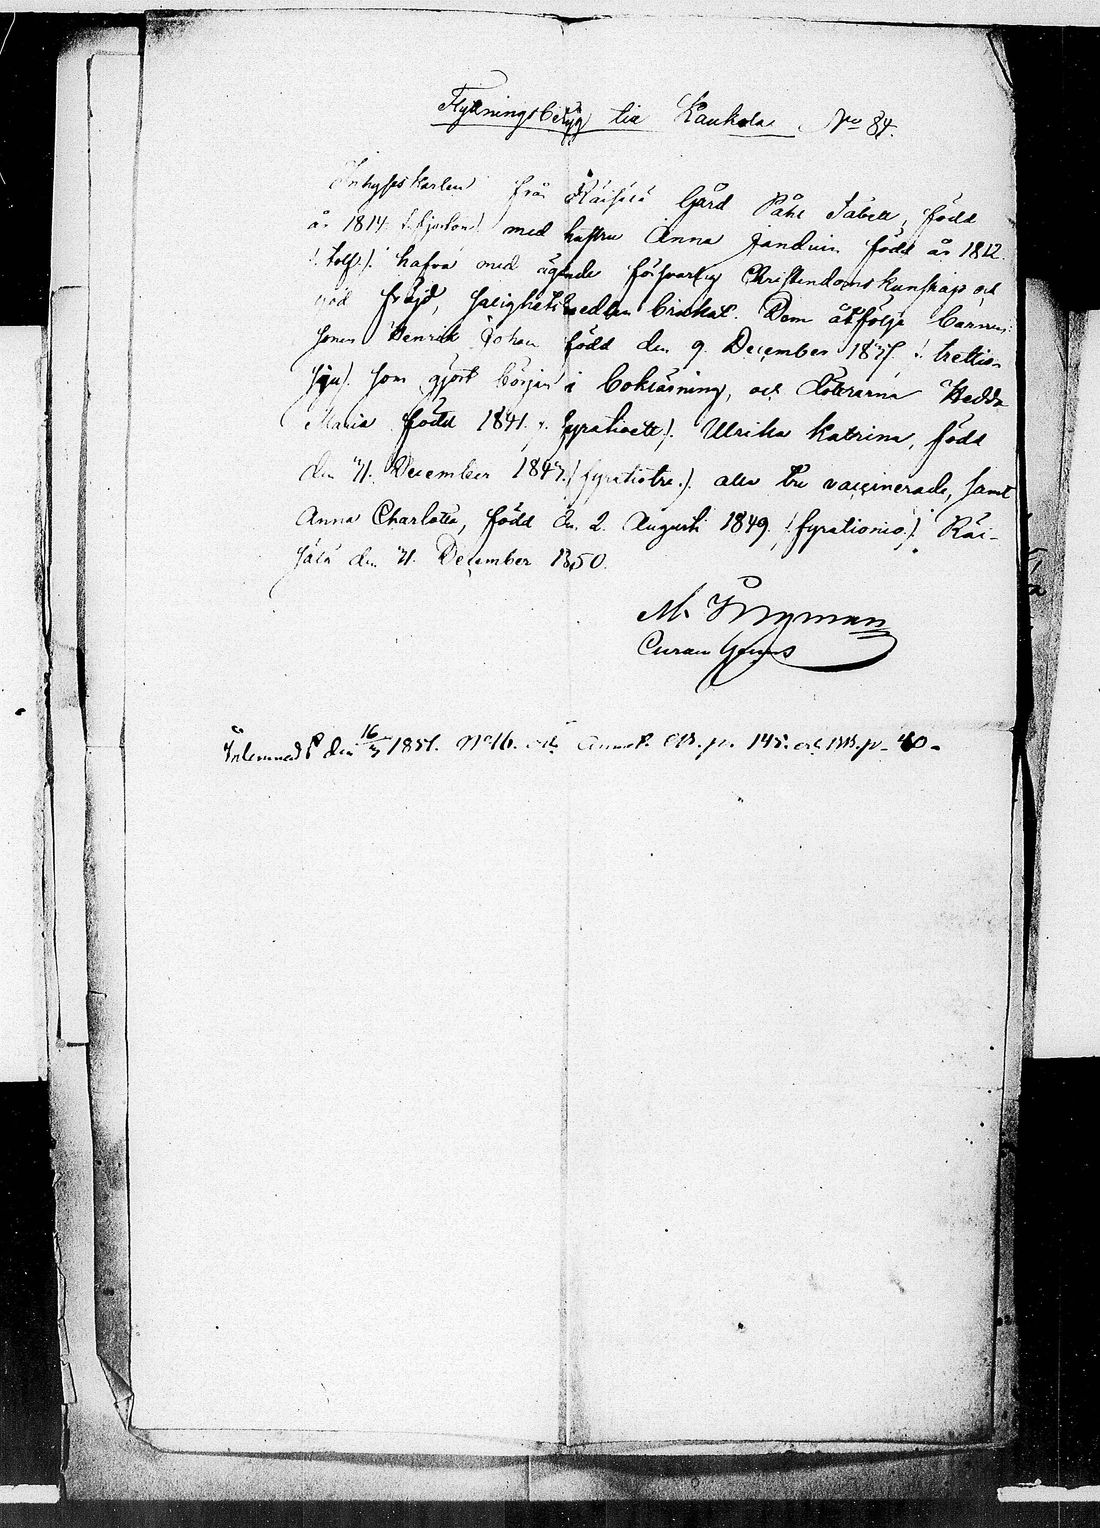 Flyttningsbetyg till Kaukola No 84.
Inhyses Karlen från Räisälä Gård Påhl Sabell, född
år 1814 /:fjorton:/ med hustru Anna Jandvin född år 1812
/:tolf:/. hafva med ägande försvarlig Christendomskunskap och
god fräjd, salighetsmedlen brukat. Dem åtfölja barnen:
sonen Henrik Johan född den 9. December 1837 /: trettio-
sju/. som gjort början i bokläsning, och döttrarna Hedda
Maria född 1841. /: fyratioett/. Ulrika Katrina, född
den 31. December 1843./:fyratiotre./. alla tre vaccinerade, samt
Anna Charlotta, född den 2. Augusti 1849, /:fyrationio./. Räi-
sälä den 31. December 1850.
M. Ingman
Curam Gerens
Inlemnad d. den 16/3 1851. No 16. och annot. CB. p. 145. och BB. p. 40.